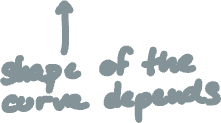 shape of the
curve depends